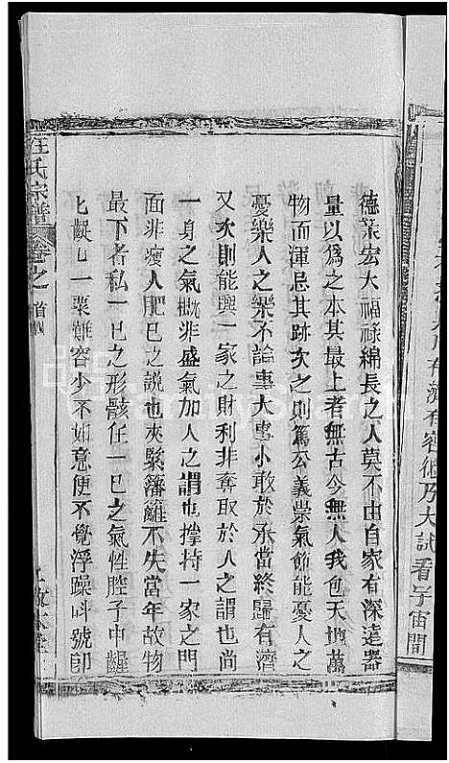 有濟有容他乃大試看宇宙間
德業宏大福祿綿長之人莫不由自家有深遠器
量以為之本其最上者無古今無人我包天地萬
物而渾忘其跡次之則篤公義崇氣節能憂人之
憂樂人之樂不論事大事小敢於承當終歸有濟
又次則能興一家之財利非奪取於人之謂也尚
一身之氣概非盛氣加人之謂也撐持一家之門
面非瘦人肥已之說也夾緊籓籬不失當年故物
最下者私一已之形骸任一已之氣性腔子中齷
七齪七一粟難容少不如意便不覺浮躁呌號卽
汪氏宗譜 卷之首四
FamilySearch